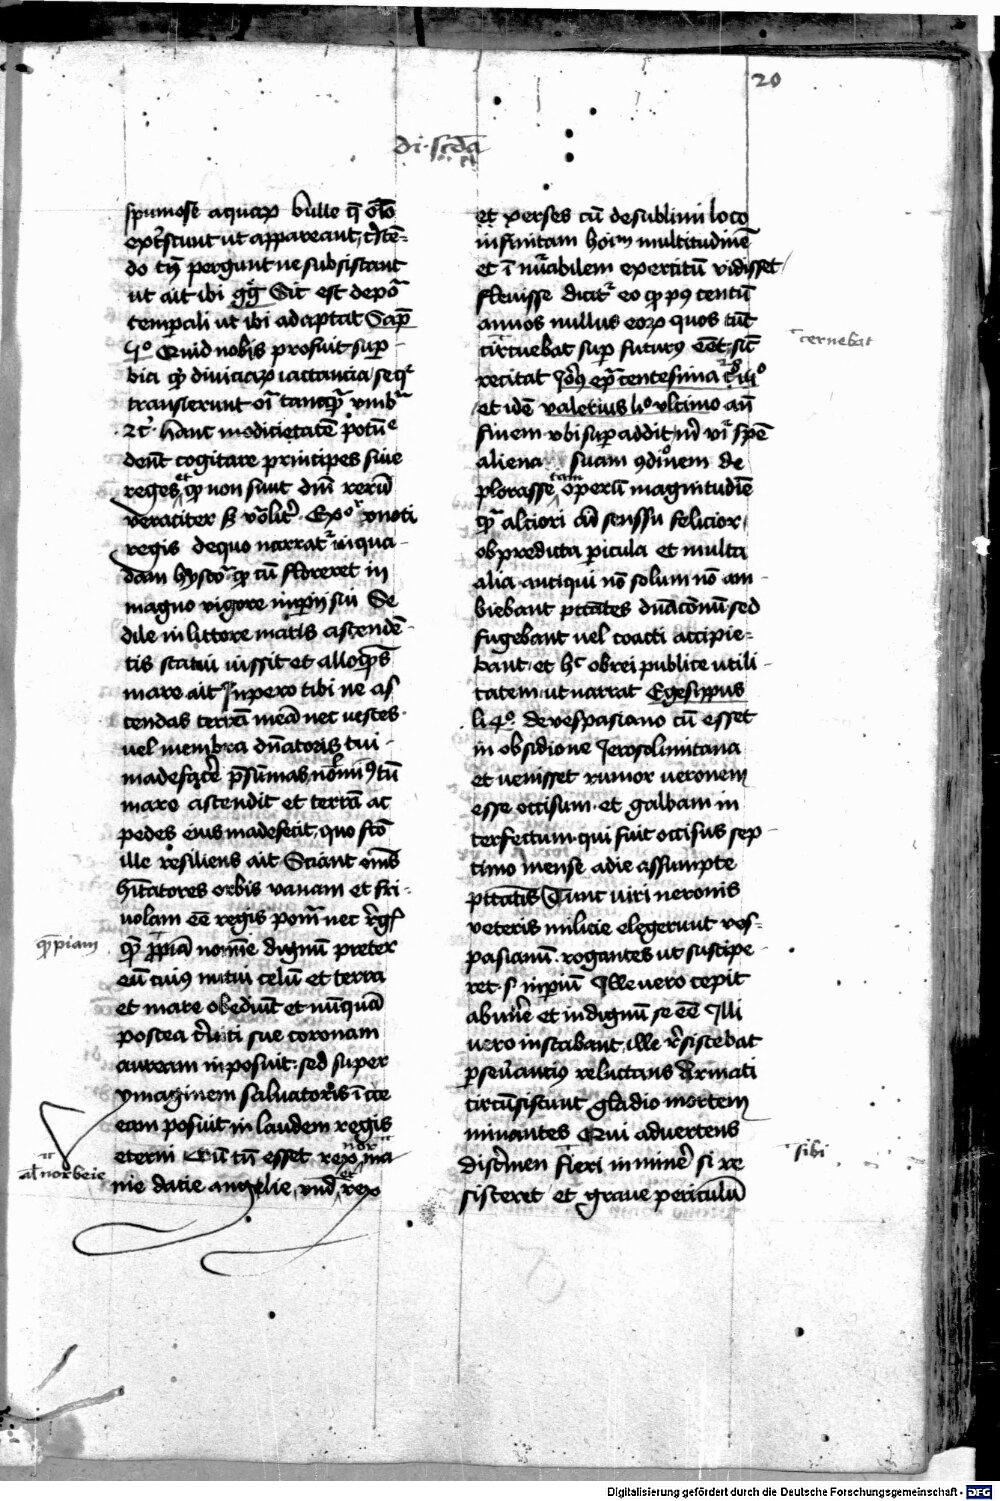 20
di. scda
spumose aquarum bulle que cito
ut appareant
do tamen pergunt ne subsistant
ut ait ibi gg Sic est de potencia
temporali ut ibi adaptat Sap
5o Quid nobis profuit super-
bia quid diviciarum iactancia sequitur
transierunt omnia tanquam umbra
2c hanc modicietatem potencie
debent cogitare principes sive
reges et quod non sunt domini rerum
veraciter sed Exo knoti
regis de quo narratur in qua-
dam hystoria quod cum floreret in
magno vigore imperii sui Se
dile in littore maris ascenden-
tis statui iussit et alloquens
mare ait Inpero tibi ne as
cendas terram meam nec vestes
vel membra dominatoris tui
madefacere presumas
mare ascendit et terram ac
pedes eius madefecit, quo facto
ille resiliens ait Sciant omnes
habitatores orbis vanam et fri-
volam esse regis potenciam nec regem
quempiam nomine dignum preter
eum cuius nutui celum et terra
et mare obediunt et nunquam
postea cerviti sue coronam
auream inposuit sed super
ymaginem salvatoris
eam posuit in laudem regis
eterni Cum tamen esset rex
nie dacie anglie, unde rex
quempiam
al norbeie
et xerses cum de sublimi loco
infinitam hominum multitudinem
et innumerabilem exercitum vidisset
flevisse dicitur eo quod post centum
annos nullus eorum quos tunc
circuebat super futurus esset, sicut
recitat Jero epistola centesima
et idem valerius lio ultimo ante
finem ubi super addit michi videtur spem
aliena suam condicionem de
plorasse operum magnitudine
quam alciori animi sensu felicior
ob predicta pericula et multa
alia antiqui non solum non am-
biebant potestates dominacionum sed
fugebant vel coacti accipie-
bant et hoc ob rei publice utili-
tatem ut narrat Egesippus
li 4o. de vespasiano cum esset
in obsidione Jerosolimitana
et venisset rumor neronem
esse occisum et galbam in
terfectum qui fuit occisus sep-
timo mense a die assumpte
potestatis Tunc viri neronis
veteris milicie elegerunt ves-
pasianum rogantes ut suscipe-
ret imperium Ille vero cepit
abnuere et indignum se esse Illi
vero instabant, ille resistebat
perseverancius reluctans armati
circumsistunt gladio mortem
minantes Qui advertens
discrimen fieri imminere si re
sisteret et grave periculum
cernebat
sibi
Digitalisierung gefördert durch die Deutsche Forschungsgemeinschaft - DFG